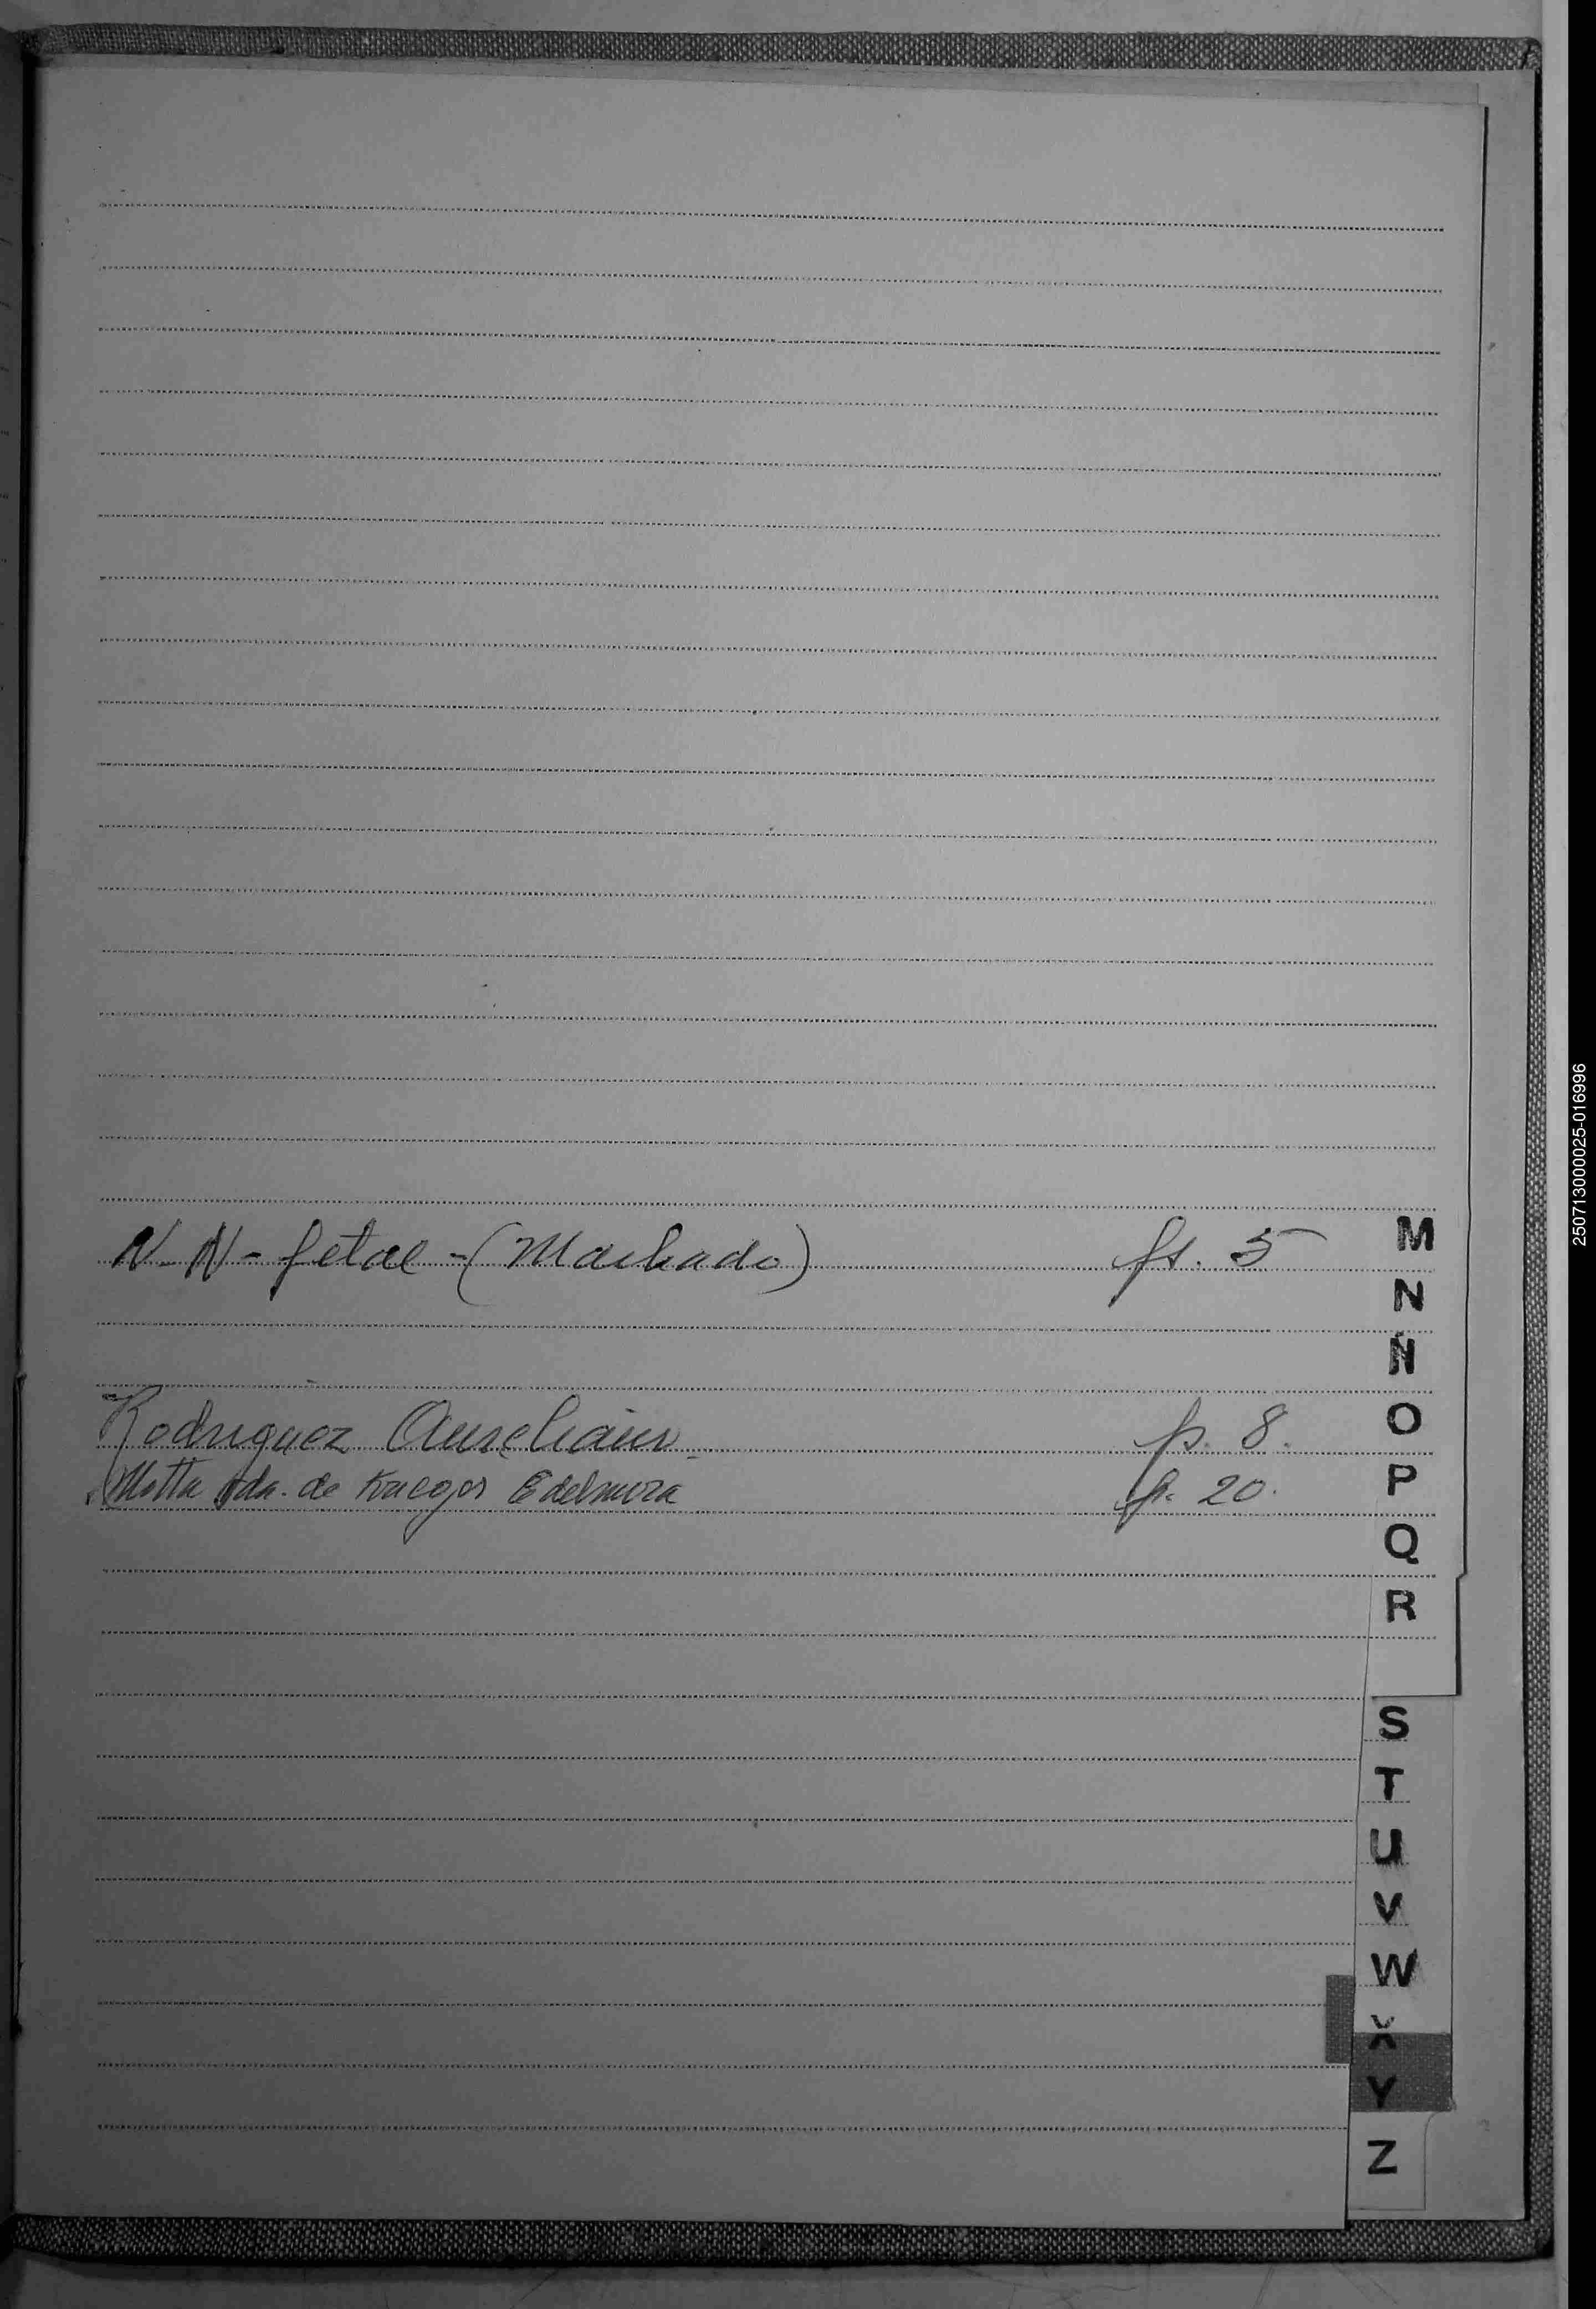 N-N- fetal -(Machado) fs. 5
Rodriguez Aureliano fs. 8.
Motta Vda. de Edelmira fs. 20.
M
N
Ñ
O
P
Q
R
S
T
U
V
W
X
Y
Z
250713000025-016996